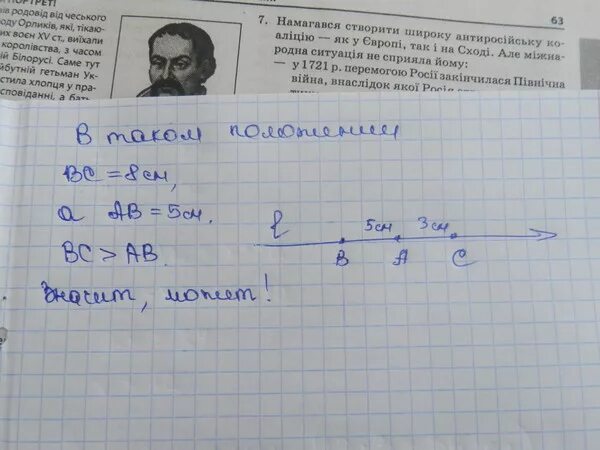 ПОРТРЕТ!
ів родовід від чеського
оду Орликів, які, тікаю-
их воєн XV ст., виїхали
королівства, з часом
й Білорусі. Саме тут
йбутній гетьман Ук-
стила хлопця у пра-
сповіданні, а бать-
63
7. Намагався створити широку антиросійську ко-
аліцію — як у Європі, так і на Сході. Але міжна-
родна ситуація не сприяла йому:
— у 1721 р. перемогою Росії закінчилася Північна
війна, внаслідок якої Росія
В таком положении
BC = 8 см,
а AB = 5 см.
BC > AB.
Значит, может!
ℓ 5 см 3 см
B A C